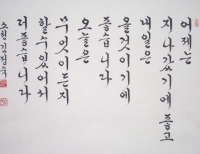 어제는
지나갔기에 좋고
내일은
올것이기에
좋습니다
오늘은
무엇이든지
할수있어서
더 좋습니다